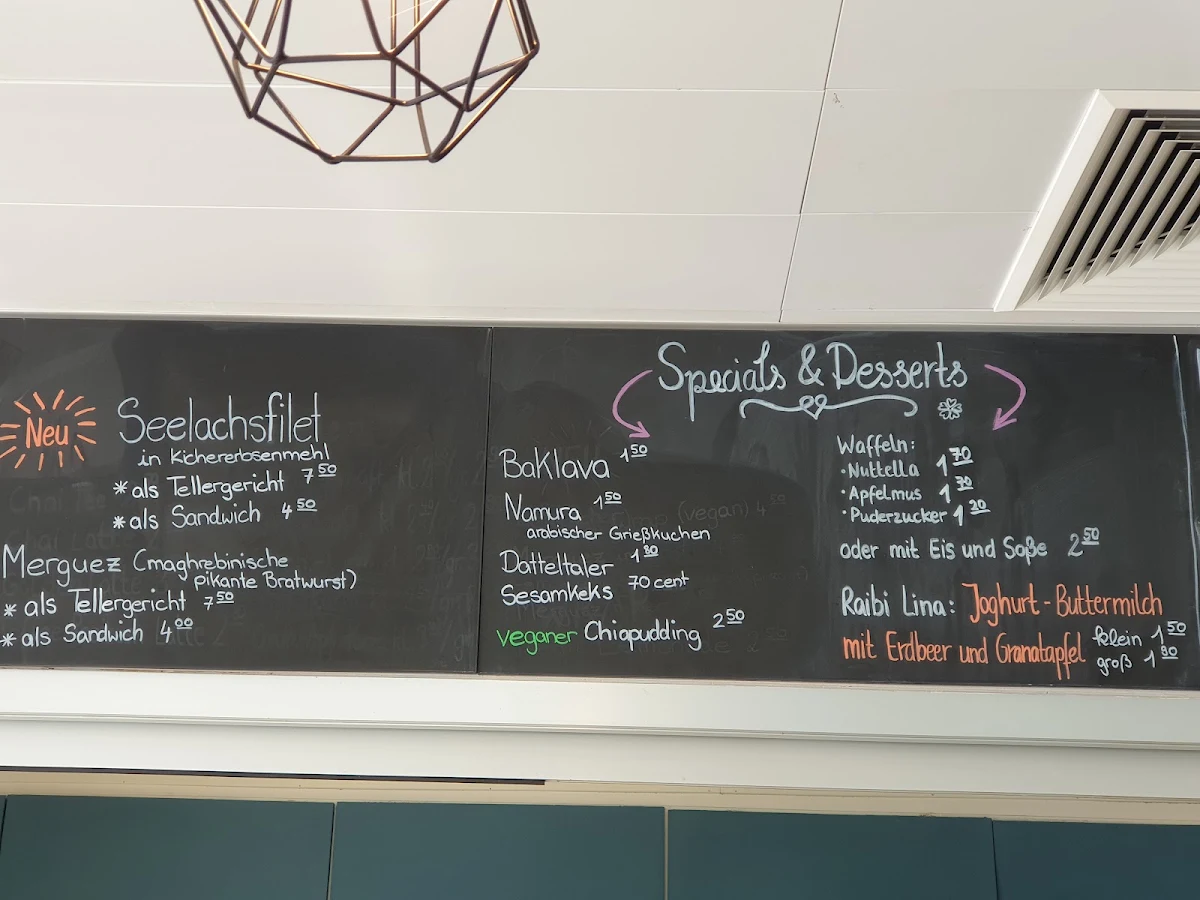 Neu
Seelachsfilet
in Kichererbsenmehl
*als Tellergericht 7 50
*als Sandwich 4 50
Merguez (maghrebinische
pikante Bratwurst)
* als Tellergericht 7 50
* als Sandwich 4 00
Specials & Desserts
Baklava 1 50
Namura 1 50
arabischer Grießkuchen
Datteltaler 1 80
Sesamkeks 70 cent
veganer Chiapudding 2 50
Waffeln:
·Nuttella 1 70
·Apfelmus 1 70
·Puderzucker 1 20
oder mit Eis und Soße 2 50
Raibi Lina: Joghurt-Buttermilch
mit Erdbeer und Granatapfel
klein 1 50
groß 1 80